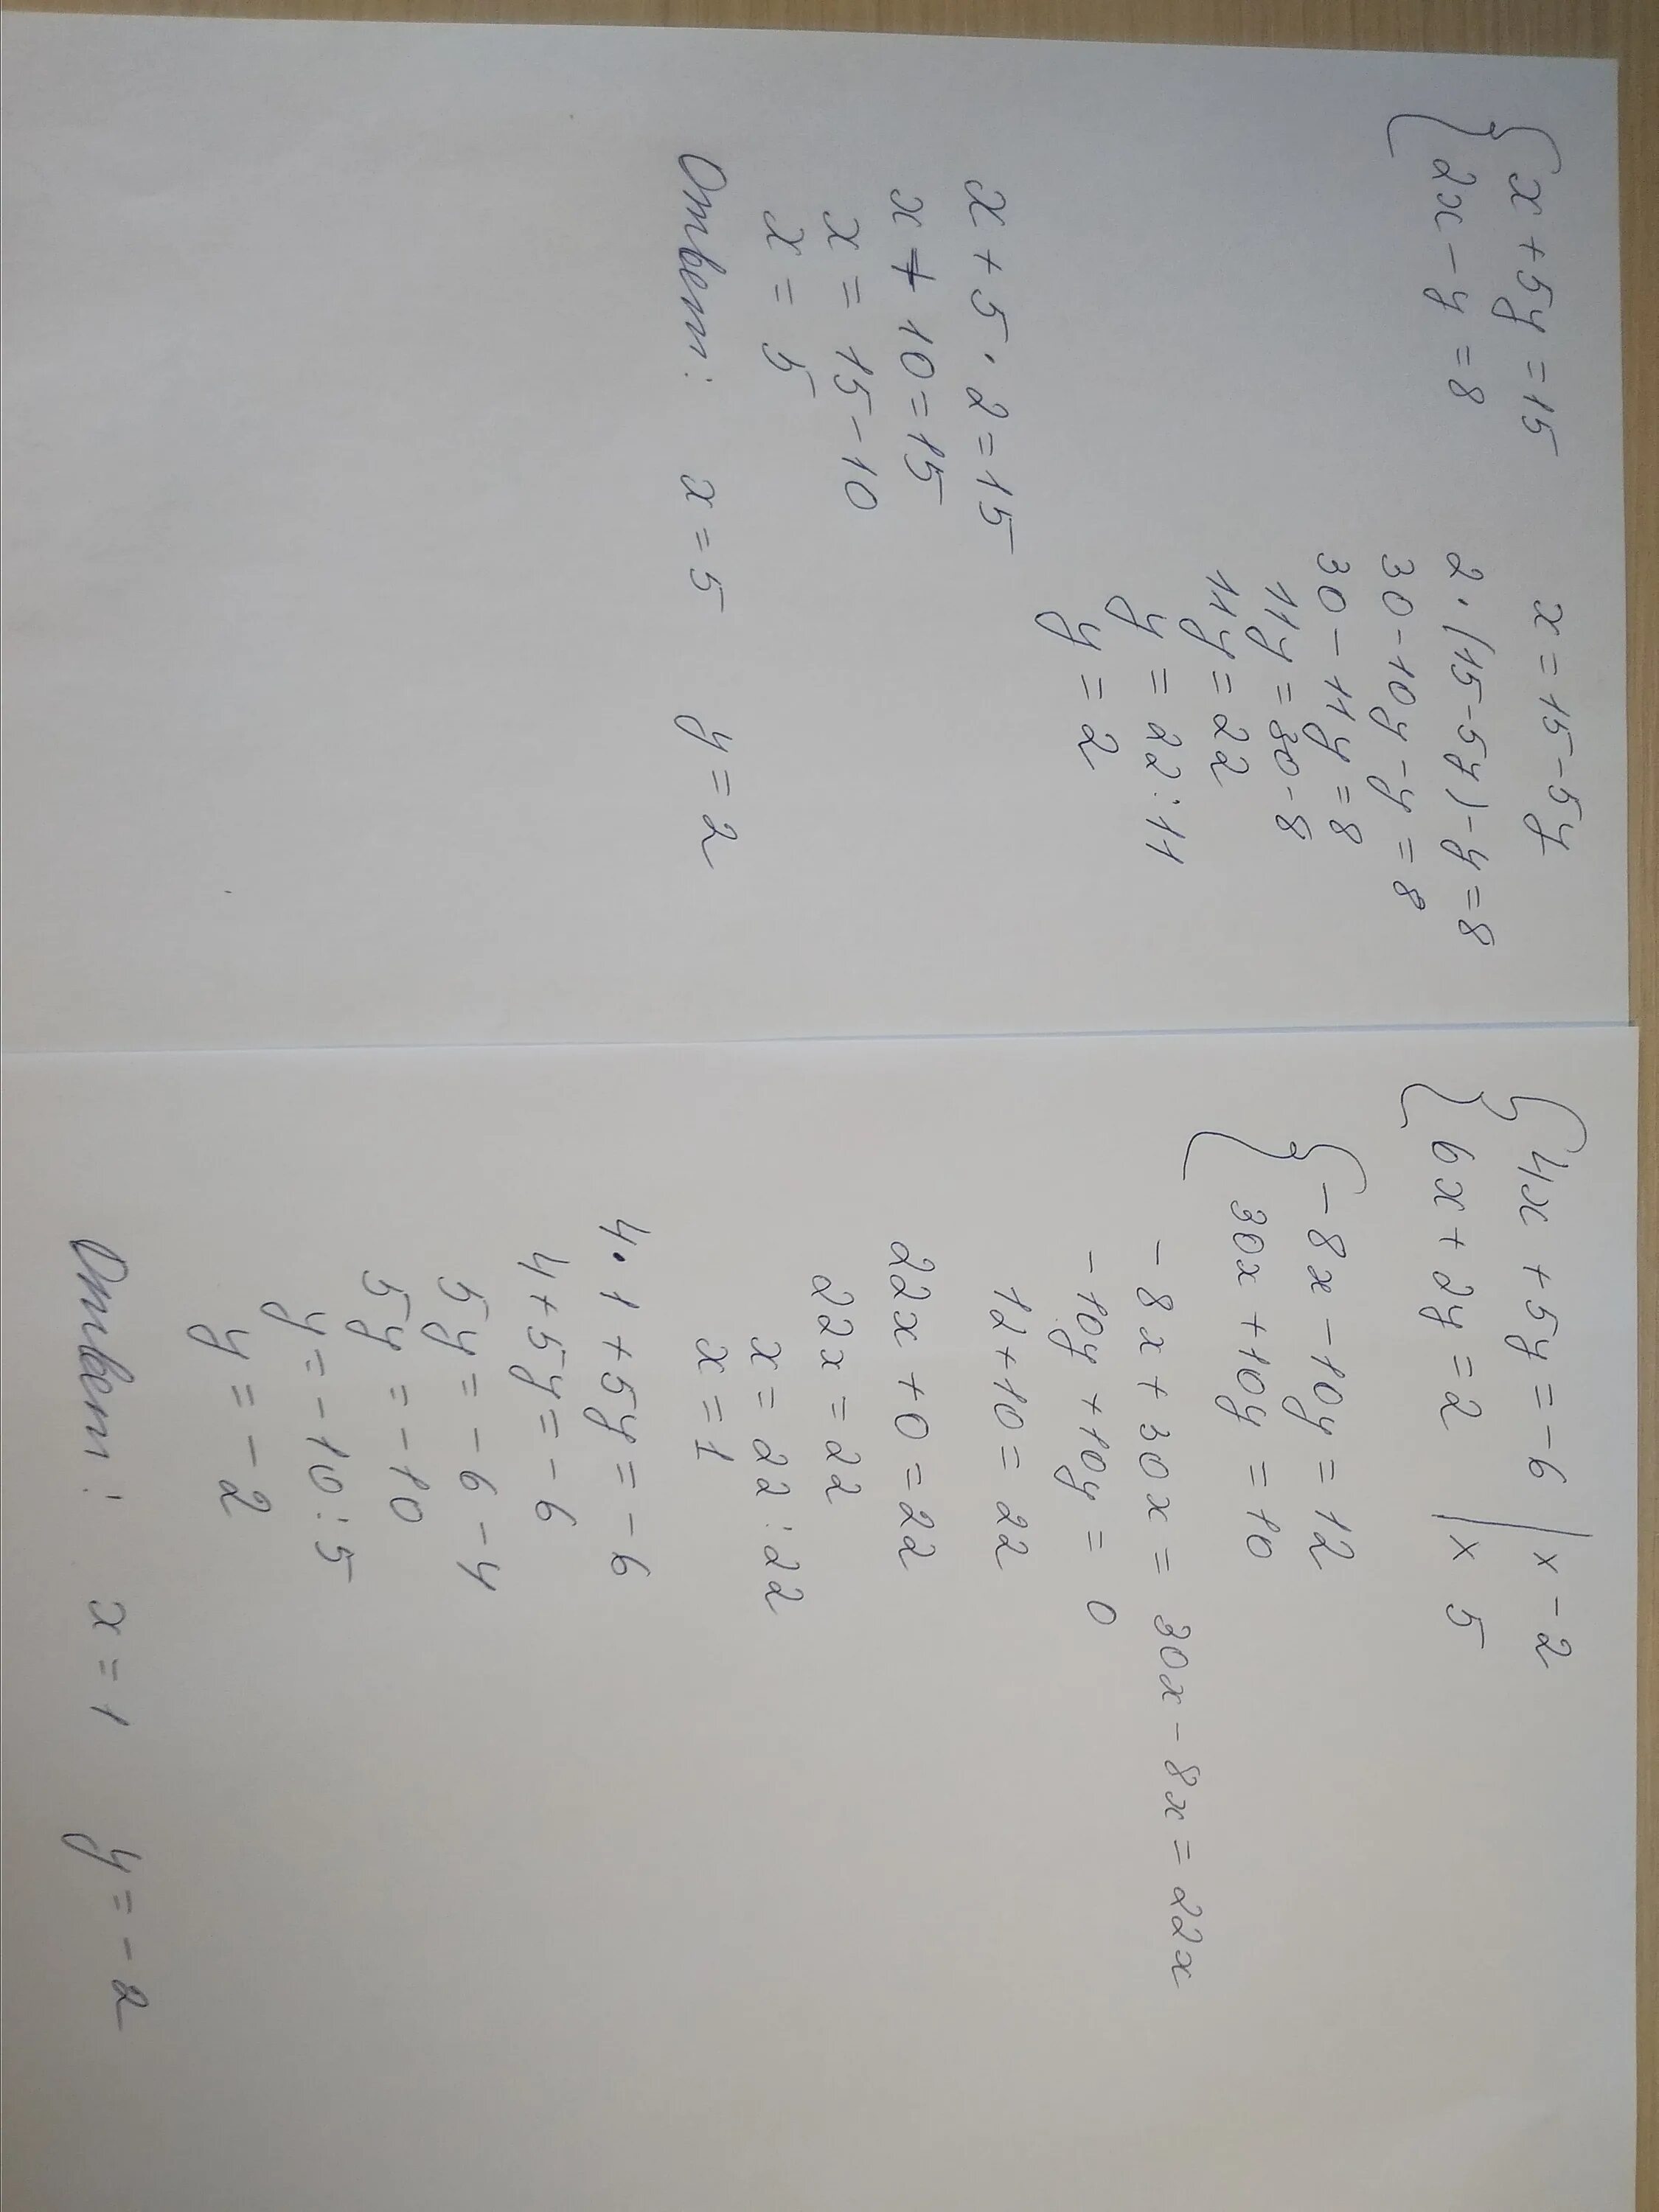 { x + 5y = 15
2x - y = 8
x = 15 - 5y
2 · (15 - 5y) - y = 8
30 - 10y - y = 8
30 - 11y = 8
11y = 30 - 8
11y = 22
y = 22 : 11
y = 2
x + 5 · 2 = 15
x + 10 = 15
x = 15 - 10
x = 5
Ответ: x = 5 y = 2
{ 4x + 5y = -6 | x -2
6x + 2y = 2 | x 5
{ -8x - 10y = 12
30x + 10y = 10
-8x + 30x = 30x - 8x = 22x
-10y + 10y = 0
12 + 10 = 22
22x + 0 = 22
22x = 22
x = 22 : 22
x = 1
4 · 1 + 5y = -6
4 + 5y = -6
5y = -6 - 4
5y = -10
y = -10 : 5
y = -2
Ответ: x = 1 y = -2